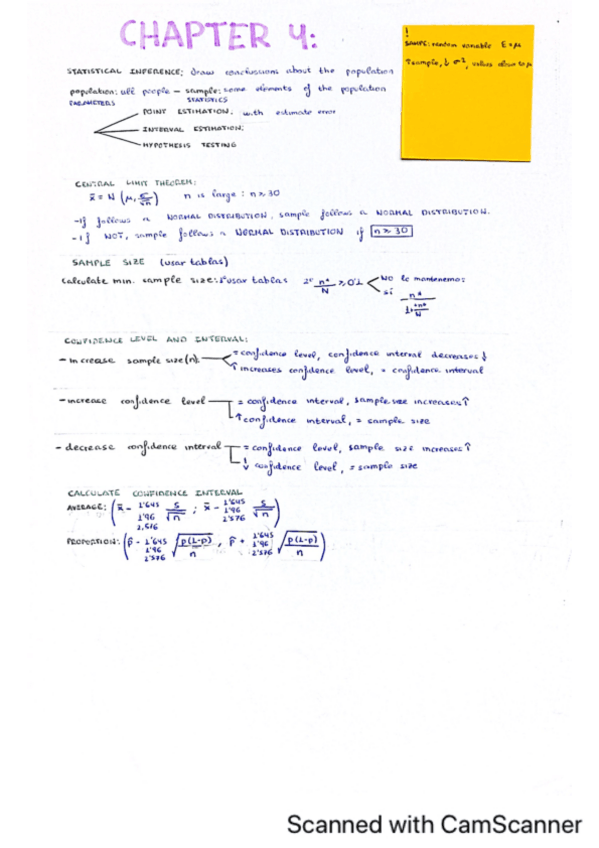 CHAPTER 4:
!
SAMPLE: random variable E=μ
↑sample, ↓ σ², values close to μ
STATISTICAL INFERENCE: draw conclusions about the population
population: all people - sample: some elements of the population
PARAMETERS STATISTICS
POINT ESTIMATION: with estimate error
INTERVAL ESTIMATION:
HYPOTHESIS TESTING
CENTRAL LIMIT THEOREM:
x̄ = N (μ, S/√n) n is large: n ≥ 30
-If follows a NORMAL DISTRIBUTION, sample follows a NORMAL DISTRIBUTION.
-If NOT, sample follows a NORMAL DISTRIBUTION if n ≥ 30
SAMPLE SIZE (usar tablas)
Calculate min. sample size: 1º usar tablas 2º n*/N ≥ 0'1 NO lo mantenemos
SÍ n*/1+n*/N
CONFIDENCE LEVEL AND INTERVAL:
- increase sample size (n) = confidence level, confidence interval decreases ↓
↑ increases confidence level, = confidence interval
- increase confidence level = confidence interval, sample size increases ↑
↑ confidence interval, = sample size
- decrease confidence interval = confidence level, sample size increases ↑
↓ confidence level, = sample size
CALCULATE CONFIDENCE INTERVAL
AVERAGE: (x̄ - 1'645 1'96 2,576 S/√n ; x̄ - 1'645 1'96 2'576 S/√n)
PROPORTION: (p̂ - 1'645 1'96 2'576 √p(1-p)/n , p̂ + 1'645 1'96 2'576 √p(1-p)/n)
Scanned with CamScanner